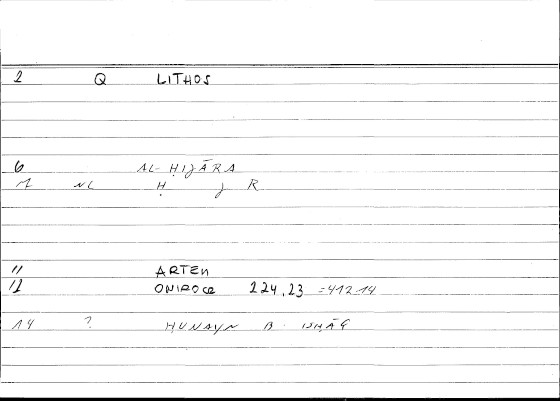 2 Q LITHOS
6 AL-ḤIJĀRA
7 NL Ḥ J R
11 ARTEM
12 ONIROCR 224,23 =412.14
14 ? ḤUNAYN B. ISḤĀQ